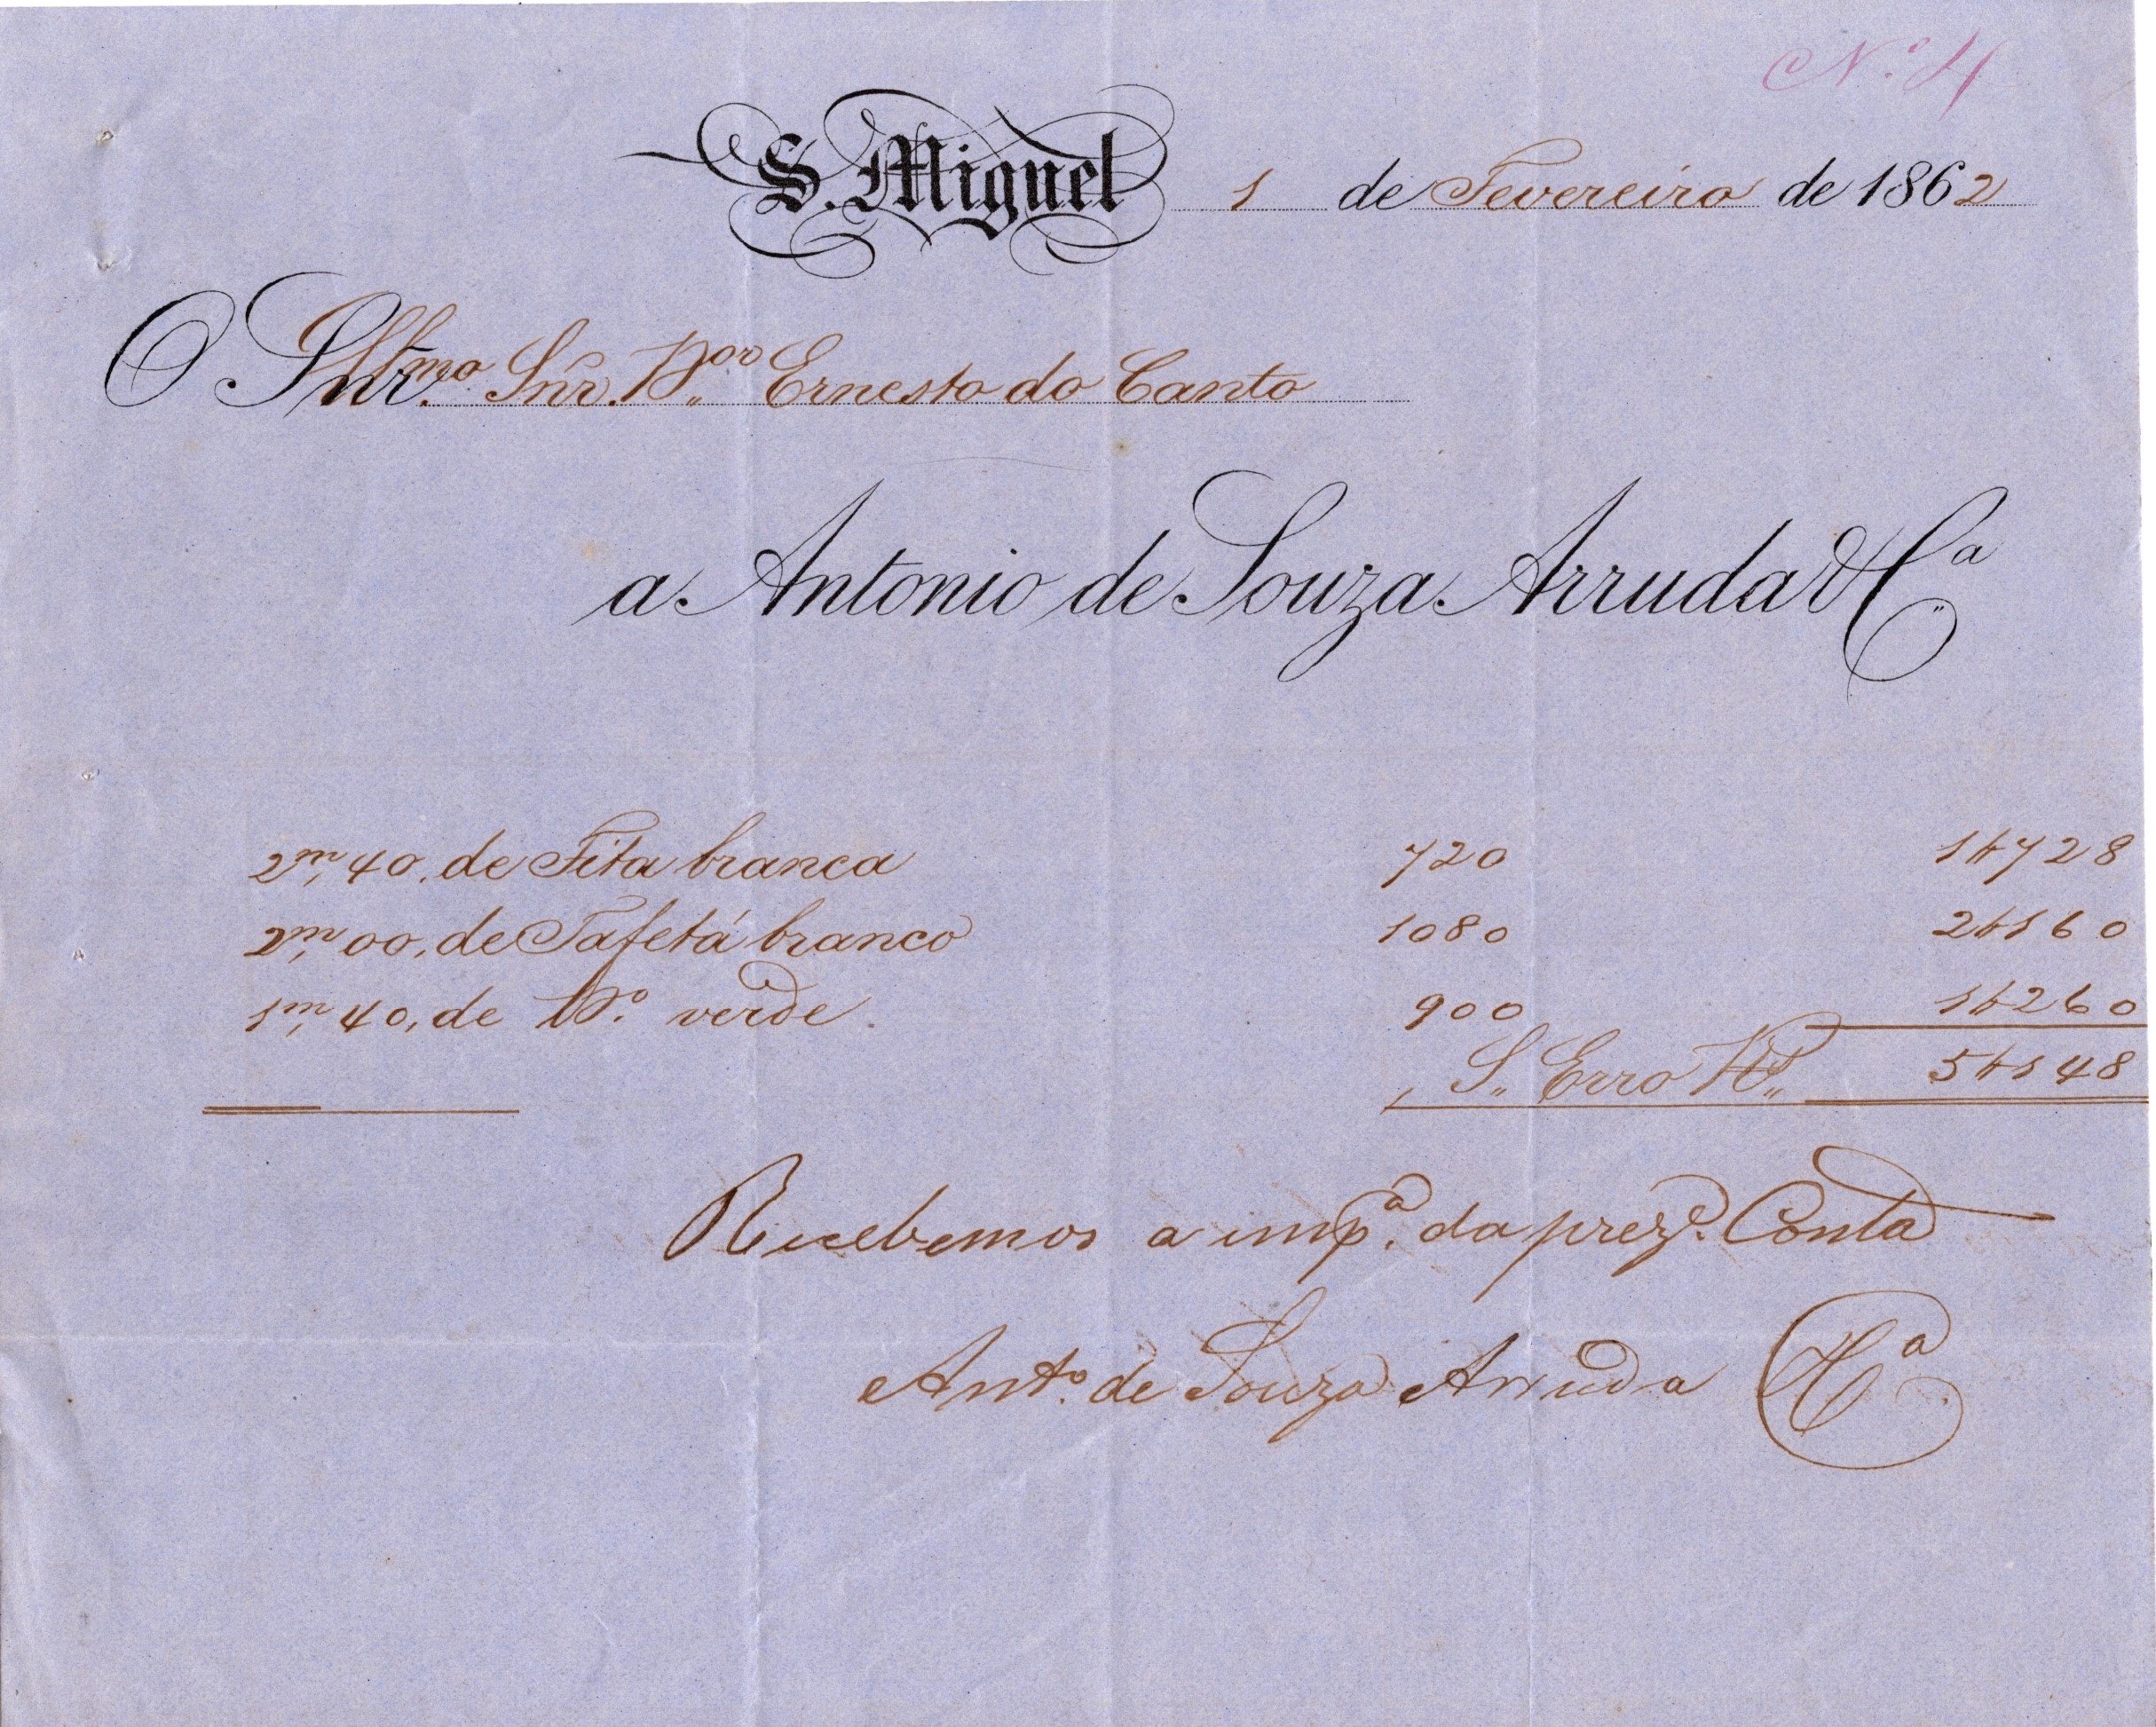 N.º 4
S. Miguel 1 de Fevereiro de 1862
O Snr. Illmo Snr. Dor Ernesto do Canto
a Antonio de Souza Arruda & Cª
2m,40, de Fita branca 720 1$728
2m,00, de Tafetá branco 1080 2$160
1m,40, de Dº. verde 900 1$260
S. Erro Rs 5$148
Recebemos a impª. da preze. Conta
Antº. de Souza Arruda & Cª